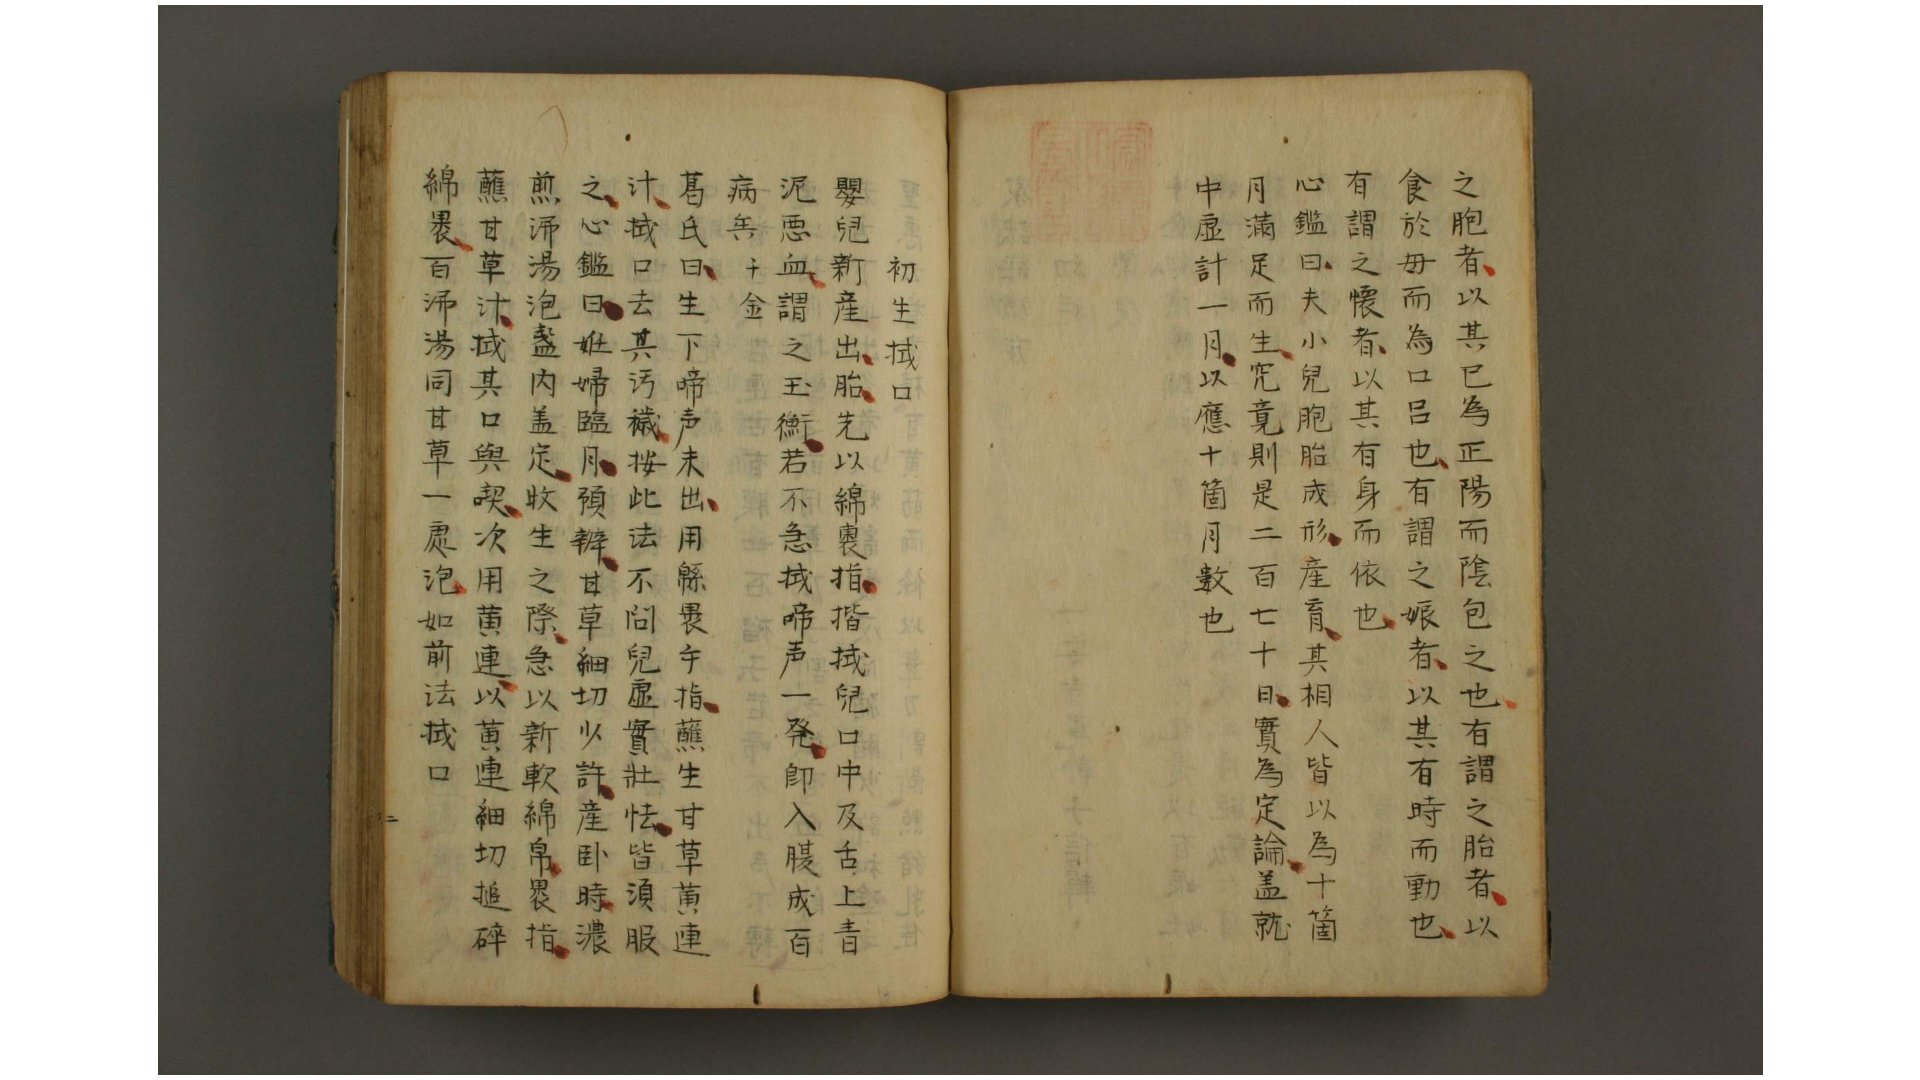 之胞者以其已為正陽而陰包之也有謂之胎者以
食於母而為口呂也有謂之娠者以其有時而動也
有謂之懐者以其有身而依也
心鑑曰夫小兒胞胎成形産育其相人皆以為十箇
月滿足而生究竟則是二百七十日實為定論盖就
中虛計一月以應十箇月數也
初生拭口
嬰兒新産出胎先以綿裹指揩拭兒口中及舌上青
泥惡血謂之玉衡若不急拭啼声一発即入腹成百
病矣 千金
葛氏曰生下啼声未出用緜裹手指蘸生甘草黄連
汁拭口去其汚穢按此法不問兒虛實壯怯皆須服
之心鑑曰姙婦臨月預辦甘草細切少許産臥時濃
煎沸湯泡盞内盖定收生之際急以新軟綿帛裹指
蘸甘草汁拭其口與喫次用黄連以黄連細切搥碎
綿裹百沸湯同甘草一處泡如前法拭口
二